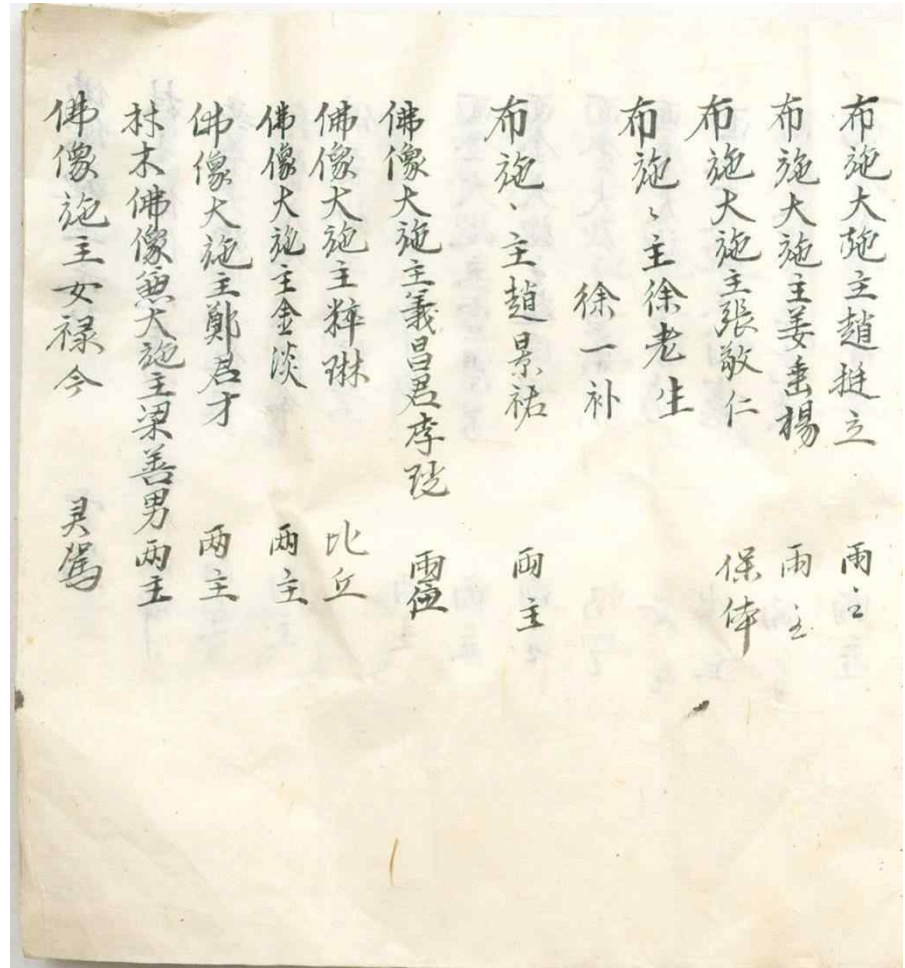 布施大施主趙挺立 兩主
布施大施主姜垂楊 兩主
布施大施主張敬仁 保体
布施〻主徐老生
徐一补
布施〻主趙景祐 兩主
佛像大施主義昌君李珖 兩位
佛像大施主粹琳 比丘
佛像大施主金淡 兩主
佛像大施主鄭君才 兩主
材木佛像兼大施主梁善男兩主
佛像施主女禄今 灵駕